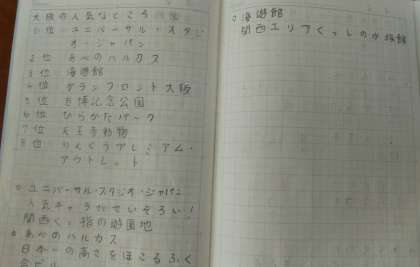 大阪の人気なところ8位
1位 ユニバーサル・スタジ
オ・ジャパン
2位 あべのハルカス
3位 海遊館
4位 グランフロント大阪
5位 万博記念公園
6位 ひらかたパーク
7位 天王寺動物
8位 りんくうプレミアム・
アウトレット
○ユニバーサル・スタジオ・ジャパン
人気キャラがせいぞろい!
関西く 指の遊園地
○あべのハルカス
日本一の高さをほこるふく
合ビル
○海遊館
関西エリアくっしの水族館